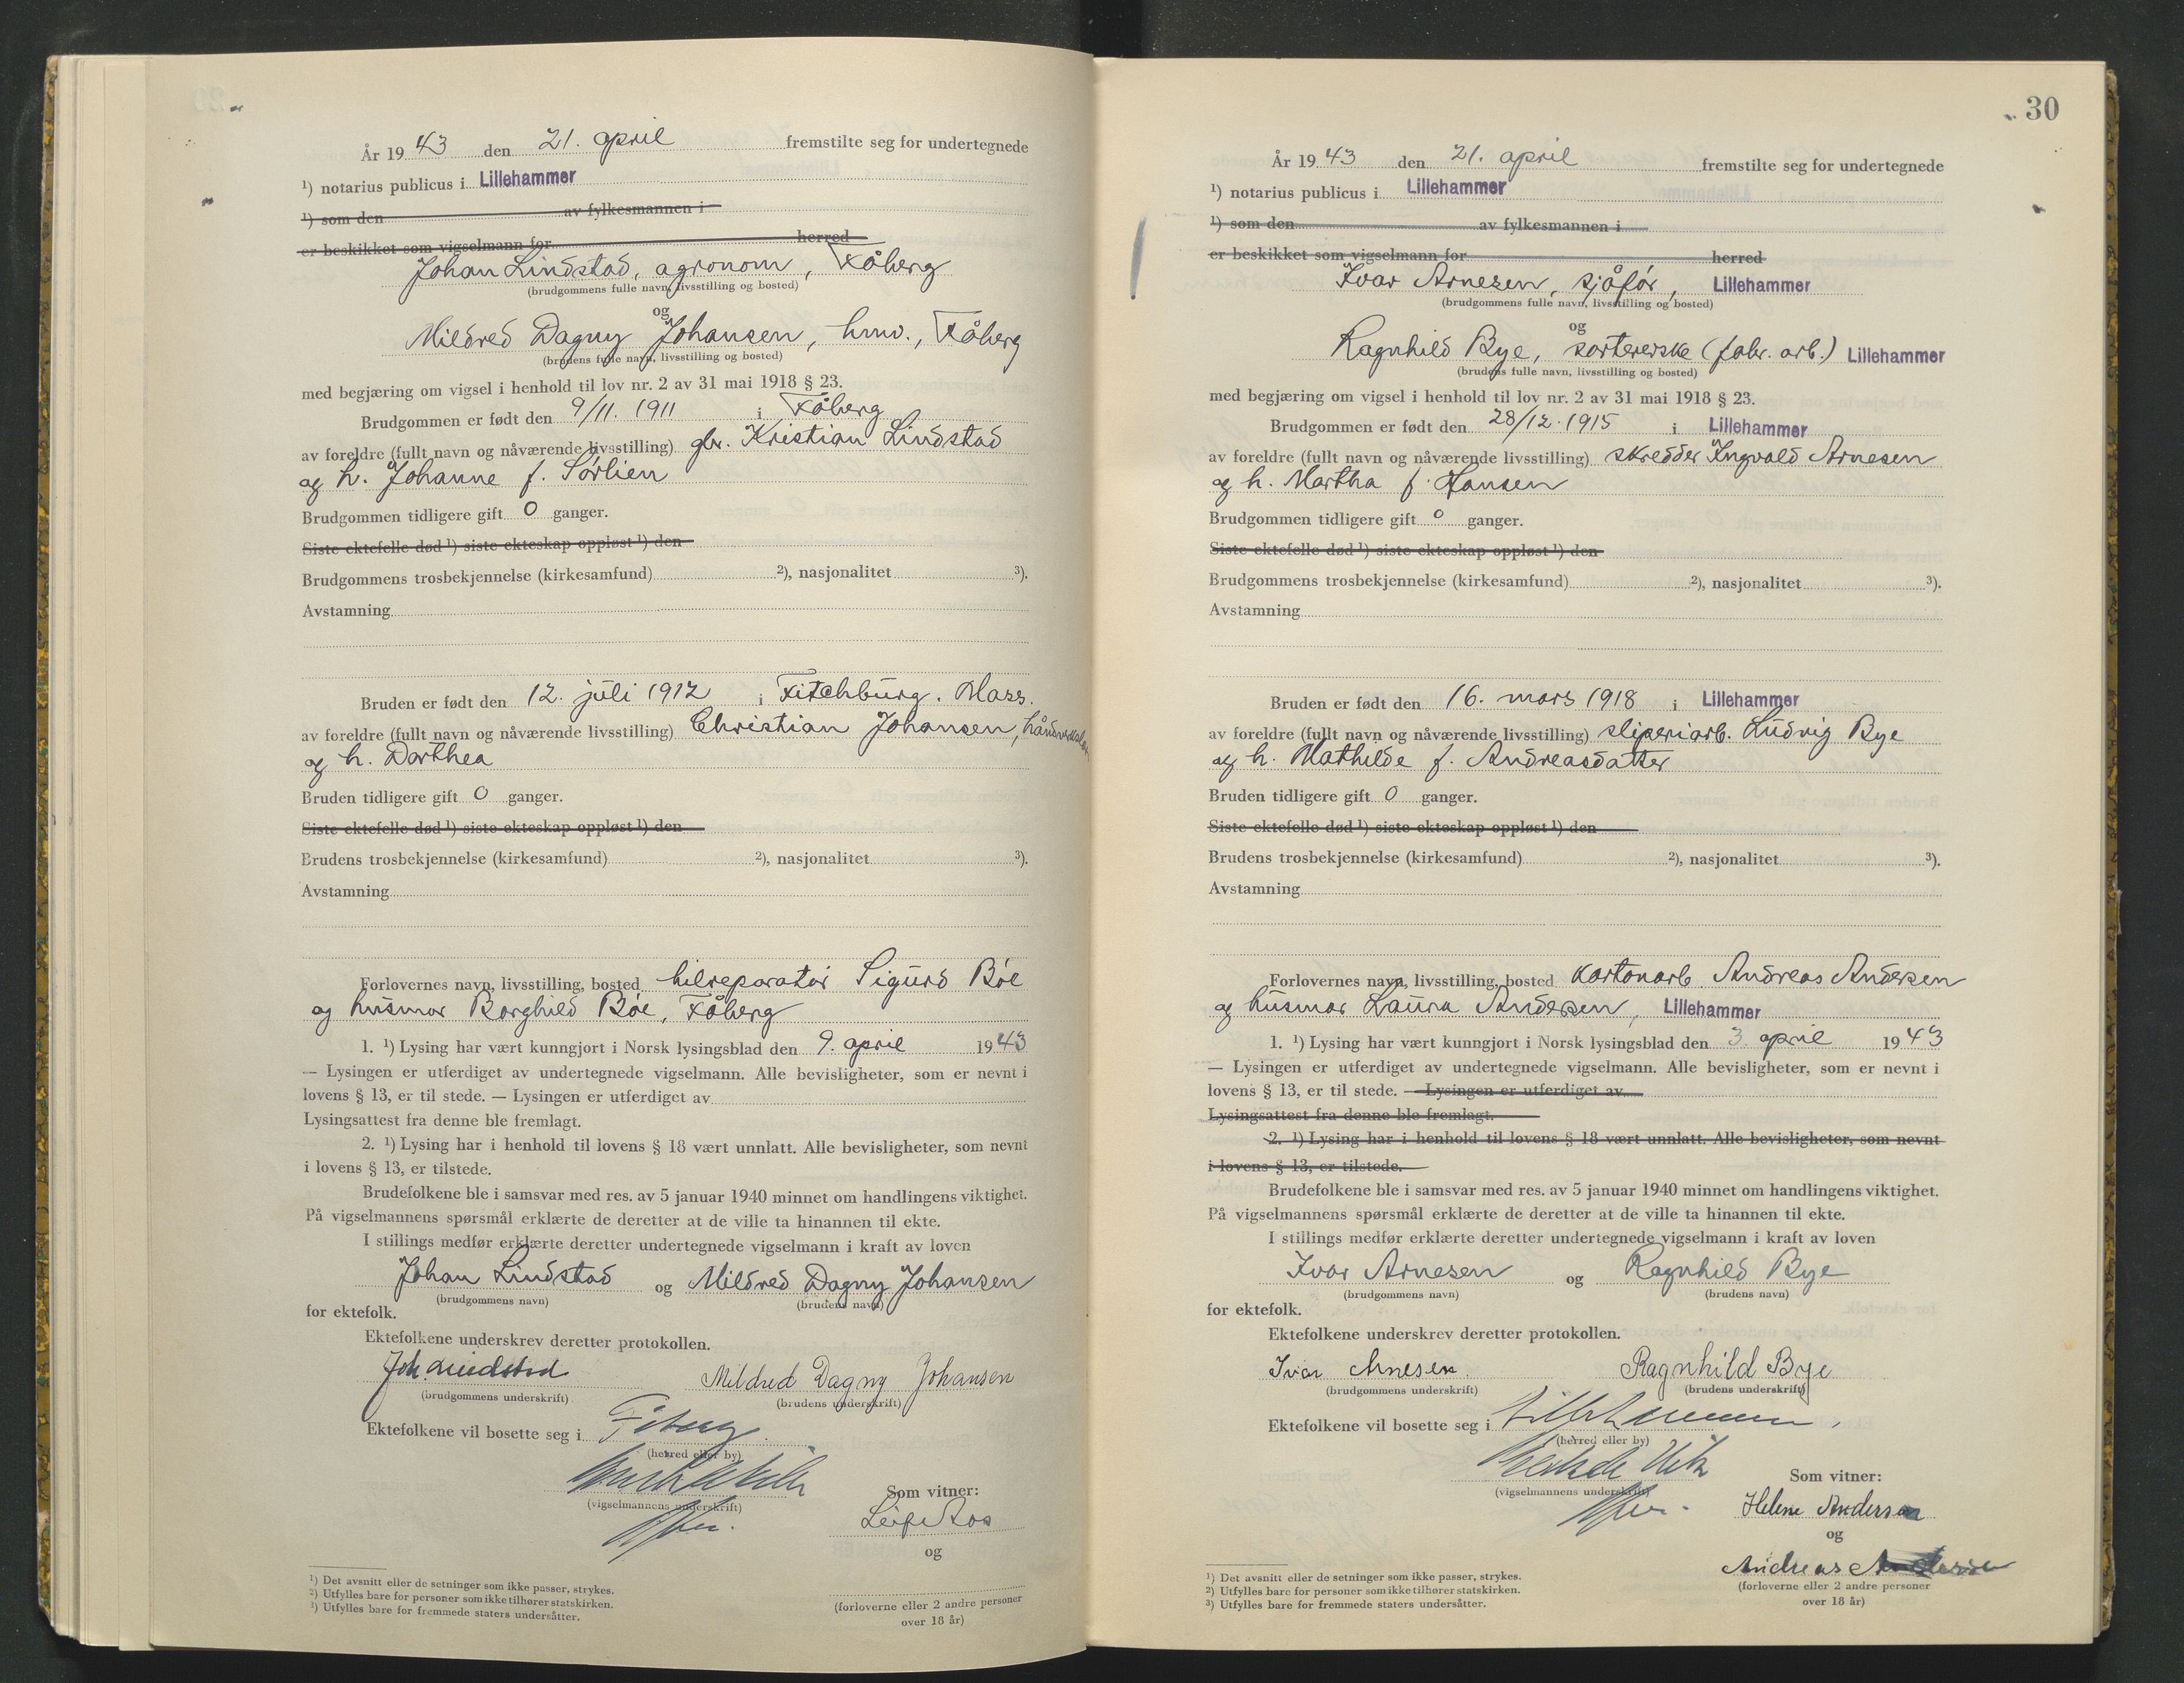 År 19 43 den 21. april fremstilte seg for undertegnede
¹) notarius publicus i Lillehammer
¹) som den av fylkesmannen i
er beskikket som vigselmann for herred
Johan Lindstad, agronom, Fåberg
(brudgommens fulle navn, livsstilling og bosted)
og
Mildred Dagny Johansen, hmv., Fåberg
(brudens fulle navn, livsstilling og bosted)
med begjæring om vigsel i henhold til lov nr. 2 av 31 mai 1918 § 23.
Brudgommen er født den 9/11. 1911 i Fåberg
av foreldre (fullt navn og nåværende livsstilling) gbr. Kristian Lindstad
og h. Johanne f. Sørlien
Brudgommen tidligere gift 0 ganger.
Siste ektefelle død ¹) siste ekteskap oppløst ¹) den
Brudgommens trosbekjennelse (kirkesamfund) ²), nasjonalitet ³).
Avstamning
Bruden er født den 12. juli 1912 i Fitchburg. Mass.
av foreldre (fullt navn og nåværende livsstilling) Christian Johansen, håndverker
og h. Dorthea
Bruden tidligere gift 0 ganger.
Siste ektefelle død ¹) siste ekteskap oppløst ¹) den
Brudens trosbekjennelse (kirkesamfund) ²), nasjonalitet ³).
Avstamning
Forlovernes navn, livsstilling, bosted bilreparatør Sigurd Bøe
og husmor Borghild Bøe, Fåberg
1. ¹) Lysing har vært kunngjort i Norsk lysingsblad den 9. april 1943
— Lysingen er utferdiget av undertegnede vigselmann. Alle bevisligheter, som er nevnt i
lovens § 13, er til stede. — Lysingen er utferdiget av
Lysingsattest fra denne ble fremlagt.
2. ¹) Lysing har i henhold til lovens § 18 vært unnlatt. Alle bevisligheter, som nevnt
i lovens § 13, er tilstede.
Brudefolkene ble i samsvar med res. av 5 januar 1940 minnet om handlingens viktighet.
På vigselmannens spørsmål erklærte de deretter at de ville ta hinannen til ekte.
I stillings medfør erklærte deretter undertegnede vigselmann i kraft av loven
Johan Lindstad og Mildred Dagny Johansen
(brudgommens navn) (brudens navn)
for ektefolk.
Ektefolkene underskrev deretter protokollen.
Joh. Lindstad Mildred Dagny Johansen
(brudgommens underskrift) (brudens underskrift)
Ektefolkene vil bosette seg i Fåberg
(herred eller by)
(vigselmannens underskrift)
Som vitner:
Leif Aos
og
(forloverne eller 2 andre personer
over 18 år)
¹) Det avsnitt eller de setninger som ikke passer, strykes.
²) Utfylles bare for personer som ikke tilhører statskirken.
³) Utfylles bare for fremmede staters undersåtter.
30
År 19 43 den 21. april fremstilte seg for undertegnede
¹) notarius publicus i Lillehammer
¹) som den av fylkesmannen i
er beskikket som vigselmann for herred
Ivar Arnesen, sjåfør, Lillehammer
(brudgommens fulle navn, livsstilling og bosted)
og
Ragnhild Bye, sortererske (fabr. arb.) Lillehammer
(brudens fulle navn, livsstilling og bosted)
med begjæring om vigsel i henhold til lov nr. 2 av 31 mai 1918 § 23.
Brudgommen er født den 28/12. 1915 i Lillehammer
av foreldre (fullt navn og nåværende livsstilling) skredder Ingvald Arnesen
og h. Martha f. Hansen
Brudgommen tidligere gift 0 ganger.
Siste ektefelle død ¹) siste ekteskap oppløst ¹) den
Brudgommens trosbekjennelse (kirkesamfund) ²), nasjonalitet ³).
Avstamning
Bruden er født den 16. mars 1918 i Lillehammer
av foreldre (fullt navn og nåværende livsstilling) sliperiarb. Ludvig Bye
og h. Mathilde f. Andreasdatter
Bruden tidligere gift 0 ganger.
Siste ektefelle død ¹) siste ekteskap oppløst ¹) den
Brudens trosbekjennelse (kirkesamfund) ²), nasjonalitet ³).
Avstamning
Forlovernes navn, livsstilling, bosted kartonarb. Andreas Andersen
og husmor Laura Andersen, Lillehammer
1. ¹) Lysing har vært kunngjort i Norsk lysingsblad den 3 april 1943
— Lysingen er utferdiget av undertegnede vigselmann. Alle bevisligheter, som er nevnt i
lovens § 13, er til stede. — Lysingen er utferdiget av
Lysingsattest fra denne ble fremlagt.
2. ¹) Lysing har i henhold til lovens § 18 vært unnlatt. Alle bevisligheter, som nevnt
i lovens § 13, er tilstede.
Brudefolkene ble i samsvar med res. av 5 januar 1940 minnet om handlingens viktighet.
På vigselmannens spørsmål erklærte de deretter at de ville ta hinannen til ekte.
I stillings medfør erklærte deretter undertegnede vigselmann i kraft av loven
Ivar Arnesen og Ragnhild Bye
(brudgommens navn) (brudens navn)
for ektefolk.
Ektefolkene underskrev deretter protokollen.
Ivar Arnesen. Ragnhild Bye
(brudgommens underskrift) (brudens underskrift)
Ektefolkene vil bosette seg i Lillehammer.
(herred eller by)
(vigselmannens underskrift)
Som vitner:
Helene Andersen
og
Andreas Andersen
(forloverne eller 2 andre personer
over 18 år)
¹) Det avsnitt eller de setninger som ikke passer, strykes.
²) Utfylles bare for personer som ikke tilhører statskirken.
³) Utfylles bare for fremmede staters undersåtter.